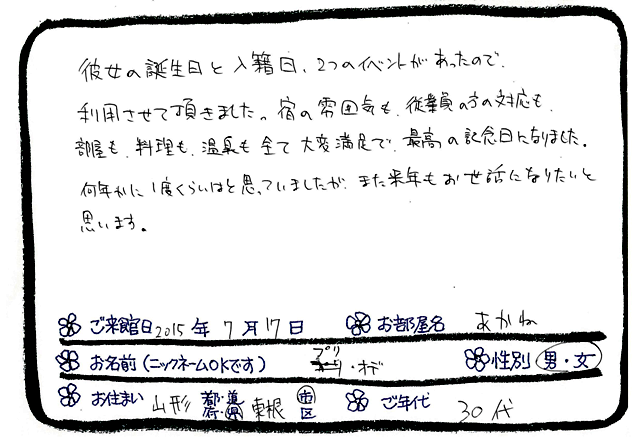 彼女の誕生日と入籍日、2つのイベントがあったので、
利用させて頂きました。宿の雰囲気も、従業員の方の対応も、
部屋も、料理も、温泉も全て大変満足で、最高の記念日になりました。
何年かに1度くらいはと思っていましたが、また来年もお世話になりたいと
思います。
ご来館日2015年7月17日 お部屋名 あかね
お名前(ニックネームOKです) プリ・オデ 性別 男・女
お住まい 山形 都・道・府・県 東根 市区 ご年代 30代